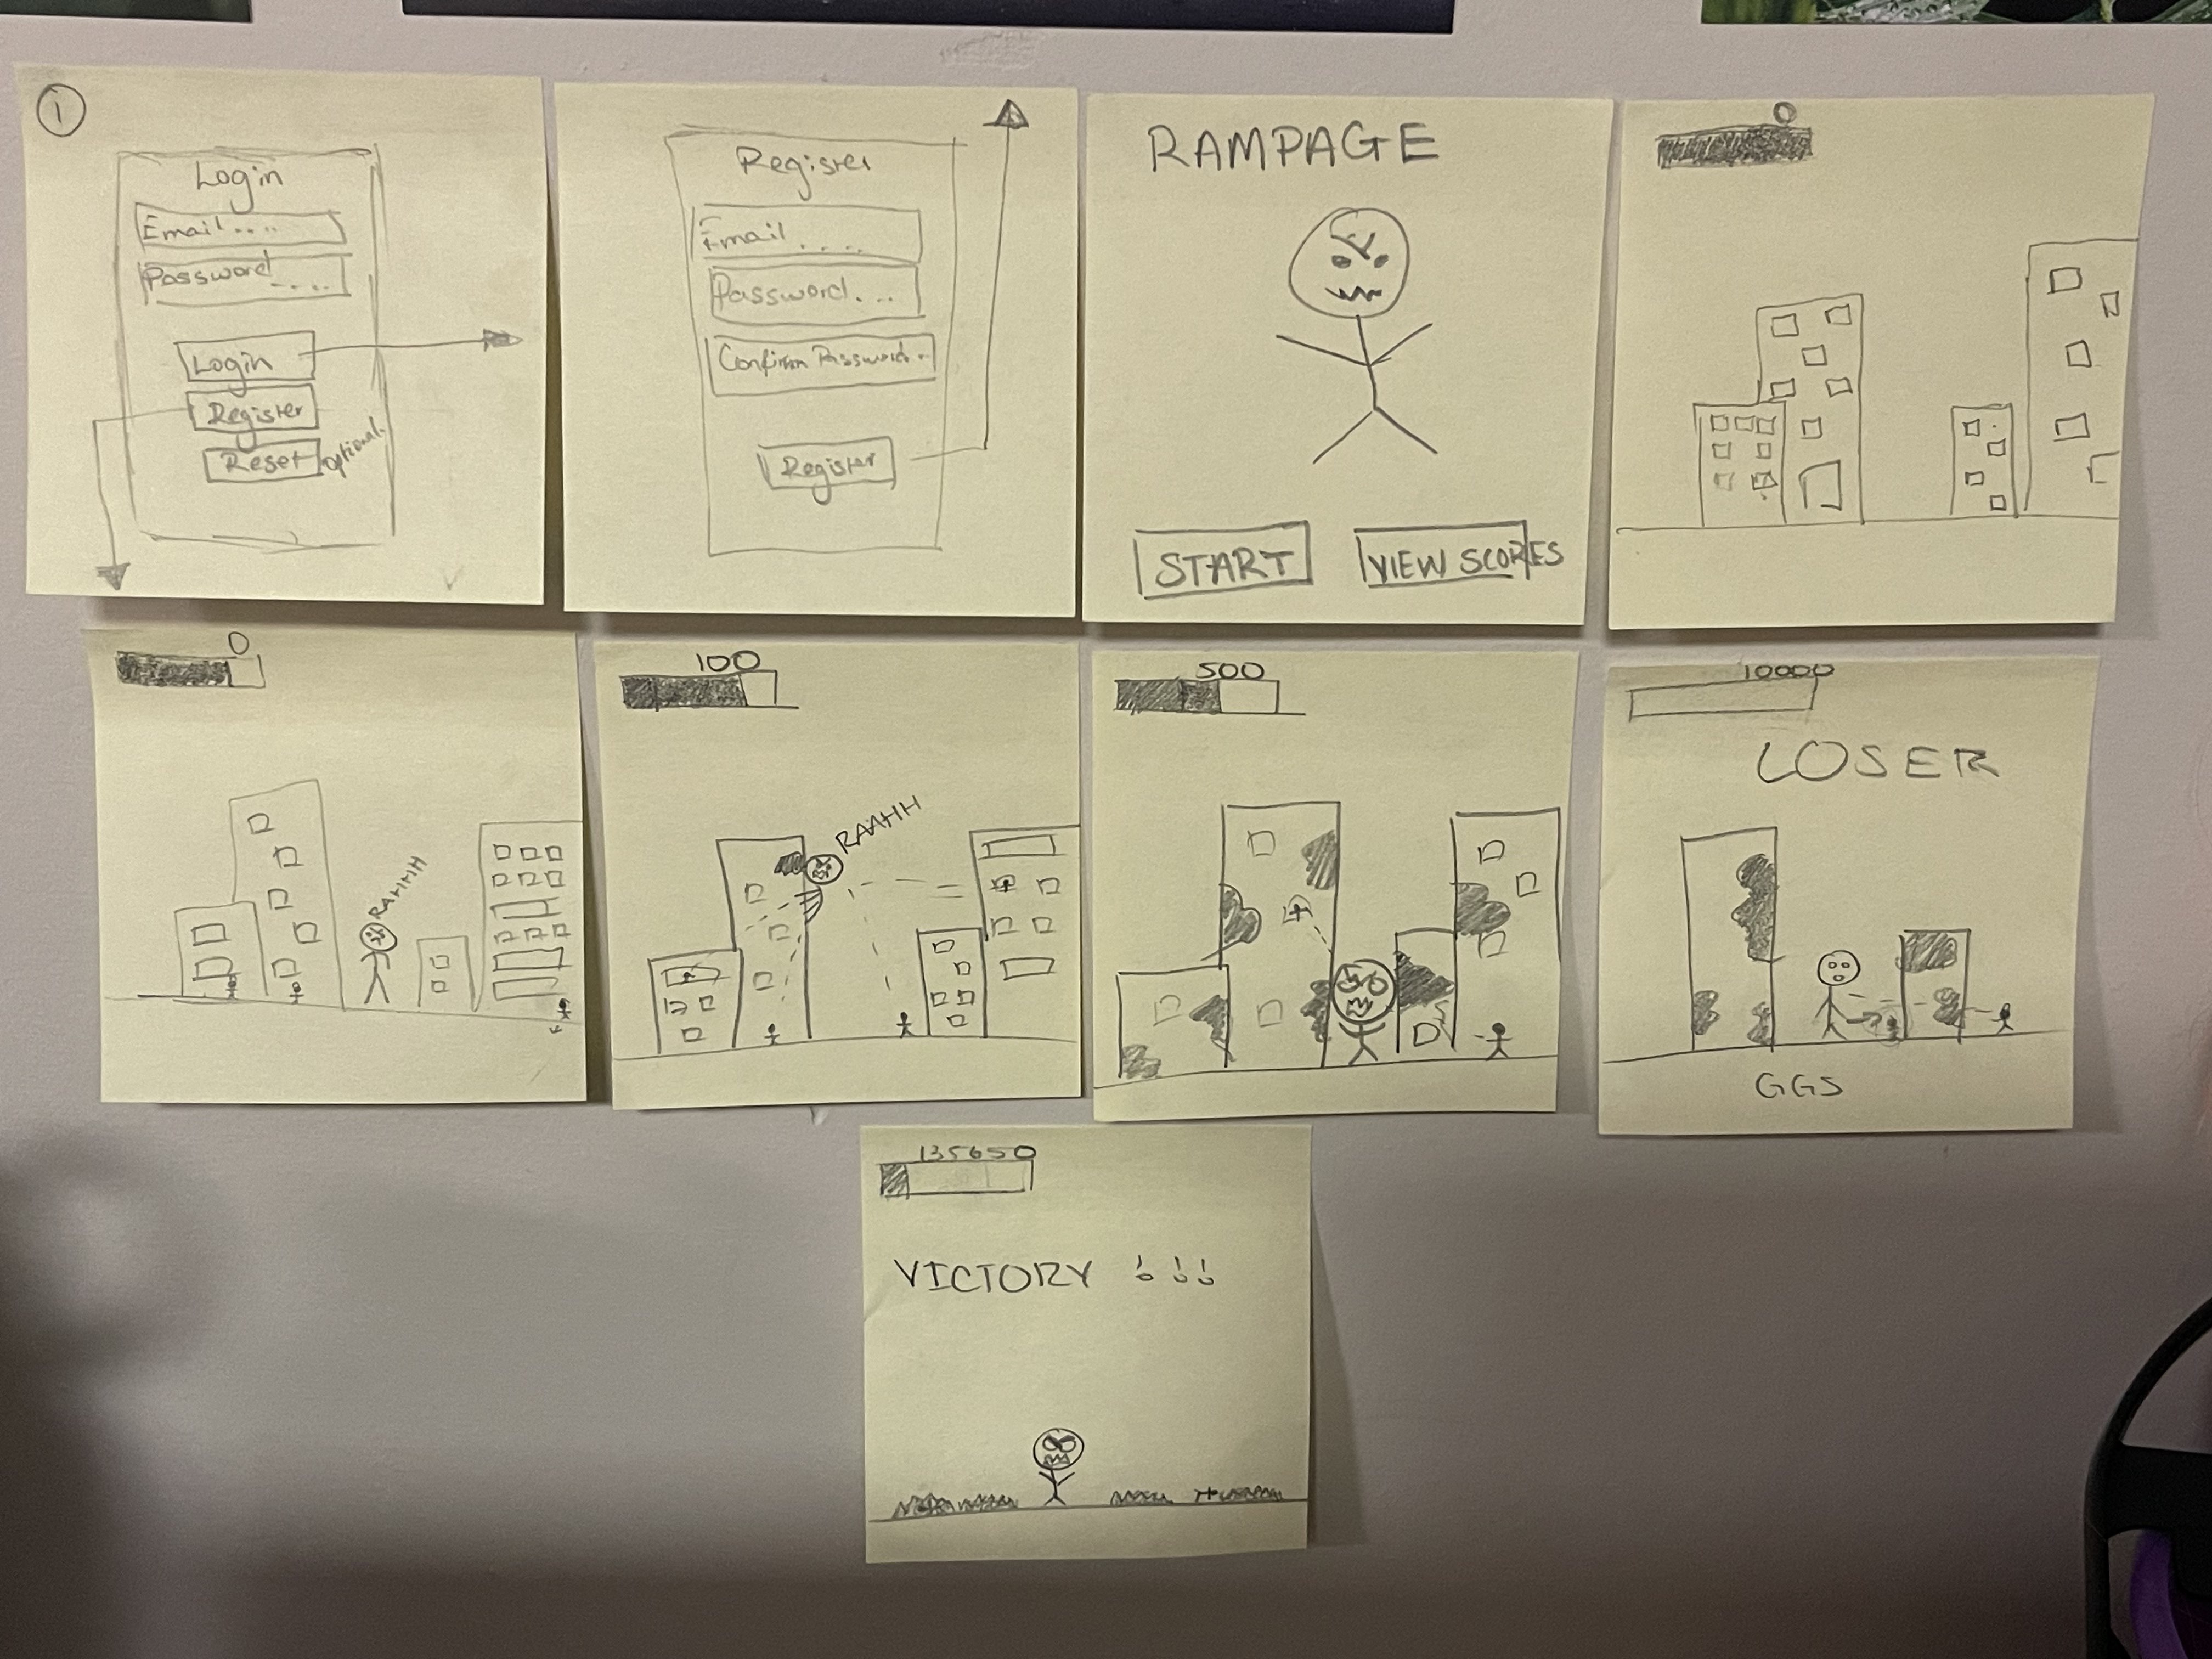 1
Login
Email....
Password....
Login
Register
Reset optional.
Register
Email....
Password...
Confirm Password.
Register
RAMPAGE
START
VIEW SCORES
0
0
RAHHHH
100
RAAHH
500
10000
LOSER
GGS
135650
VICTORY !!!